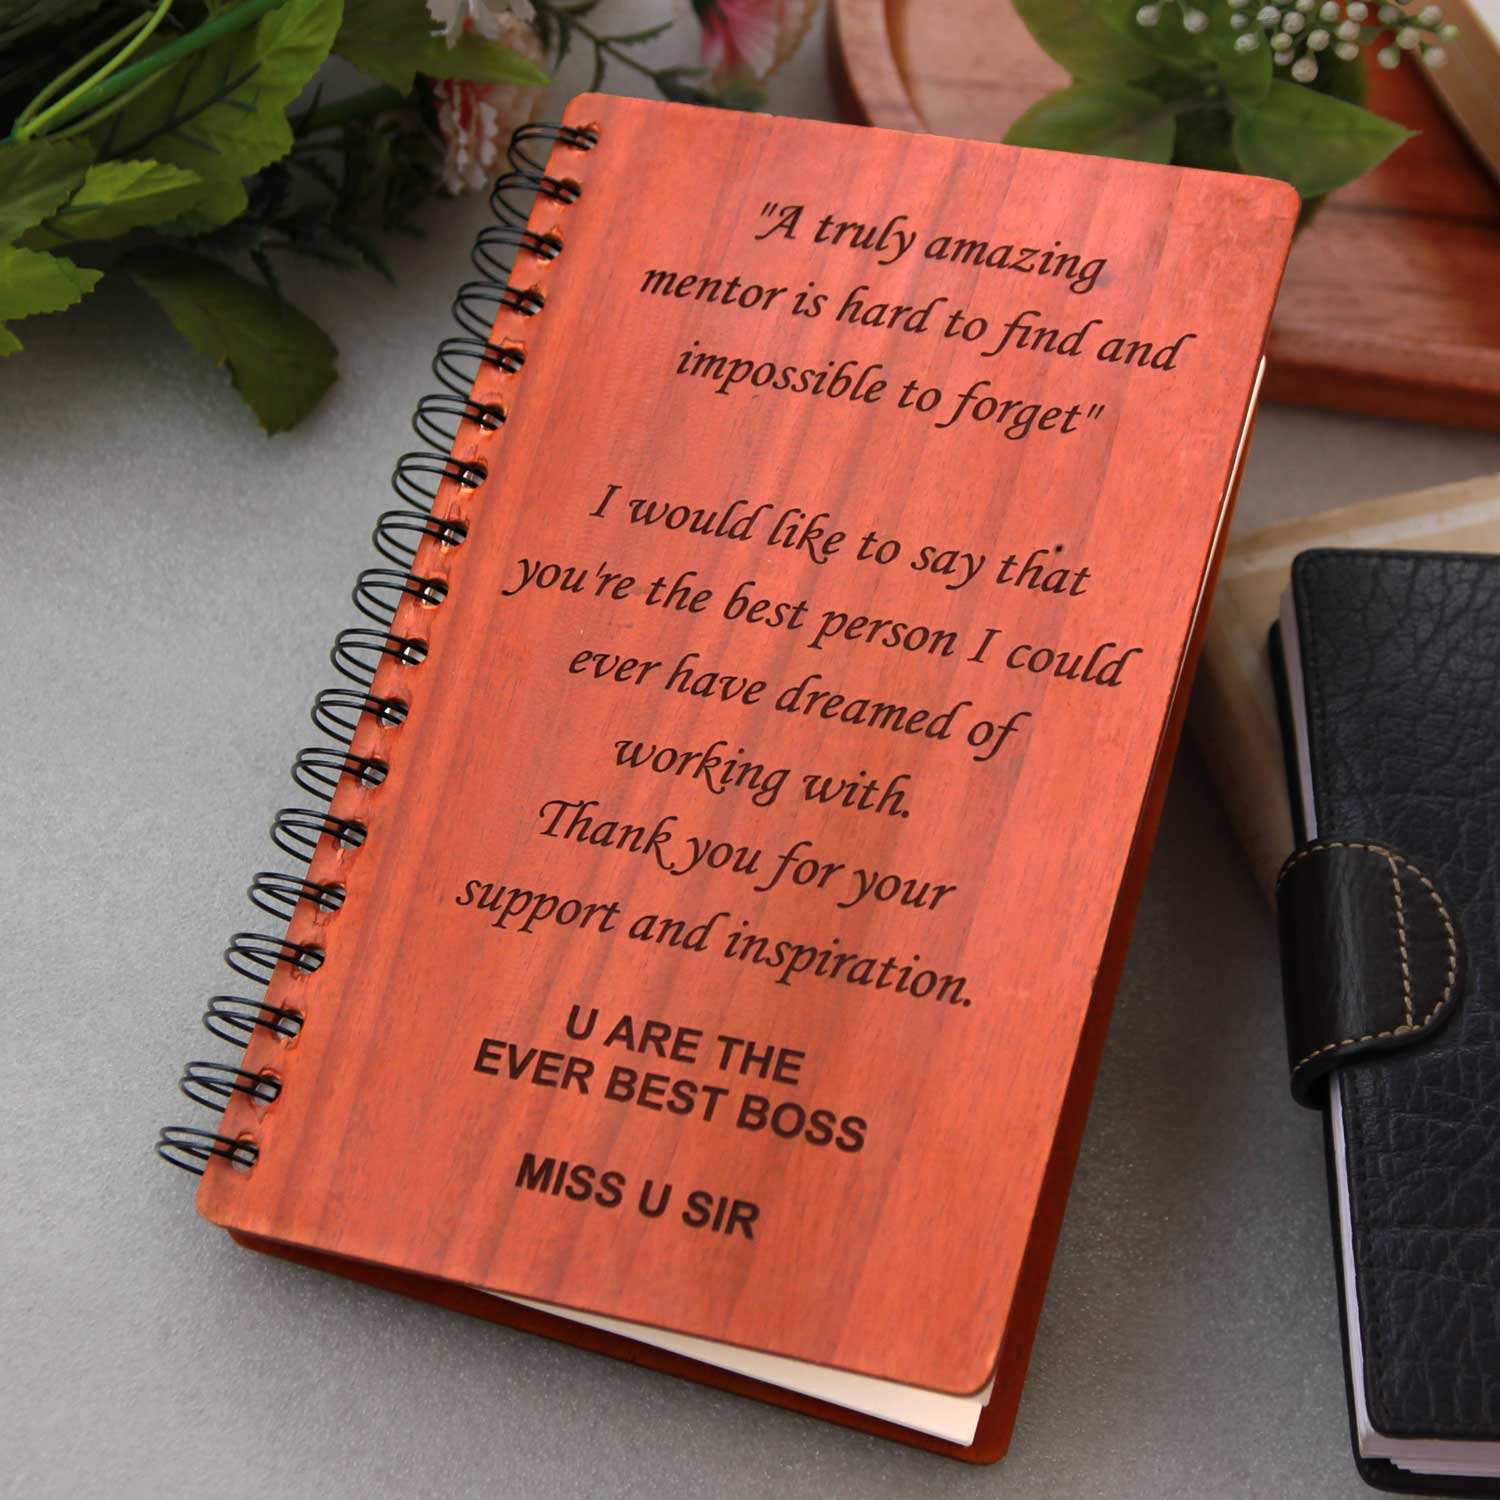 "A truly amazing
mentor is hard to find and
impossible to forget"
I would like to say that
you're the best person I could
ever have dreamed of
working with.
Thank you for your
support and inspiration.
U ARE THE
EVER BEST BOSS
MISS U SIR